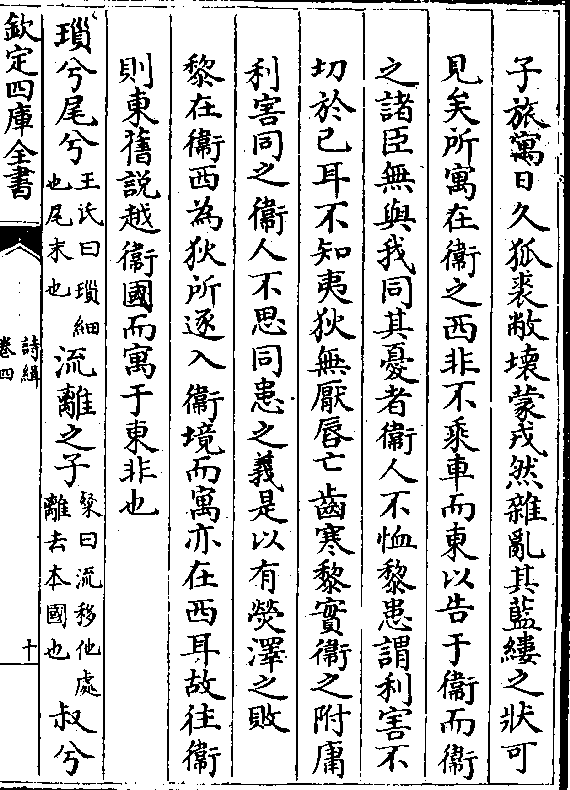 子旅寓日久狐裘敝壞蒙戎然雜亂其藍縷之狀可
見矣所寓在衞之西非不乘車而東以告于衞而衞
之諸臣無與我同其憂者衞人不恤黎患謂利害不
切於己耳不知夷狄無厭唇亡齒寒黎實衞之附庸
利害同之衞人不思同患之義是以有熒澤之敗
黎在衞西為狄所逐入衞境而寓亦在西耳故往衞
則東舊説越衞國而寓于東非也
瑣兮尾兮王氏曰瑣細也尾末也流離之子粲曰流移他處離去本國也叔兮
欽定四庫全書
詩緝
卷四
十